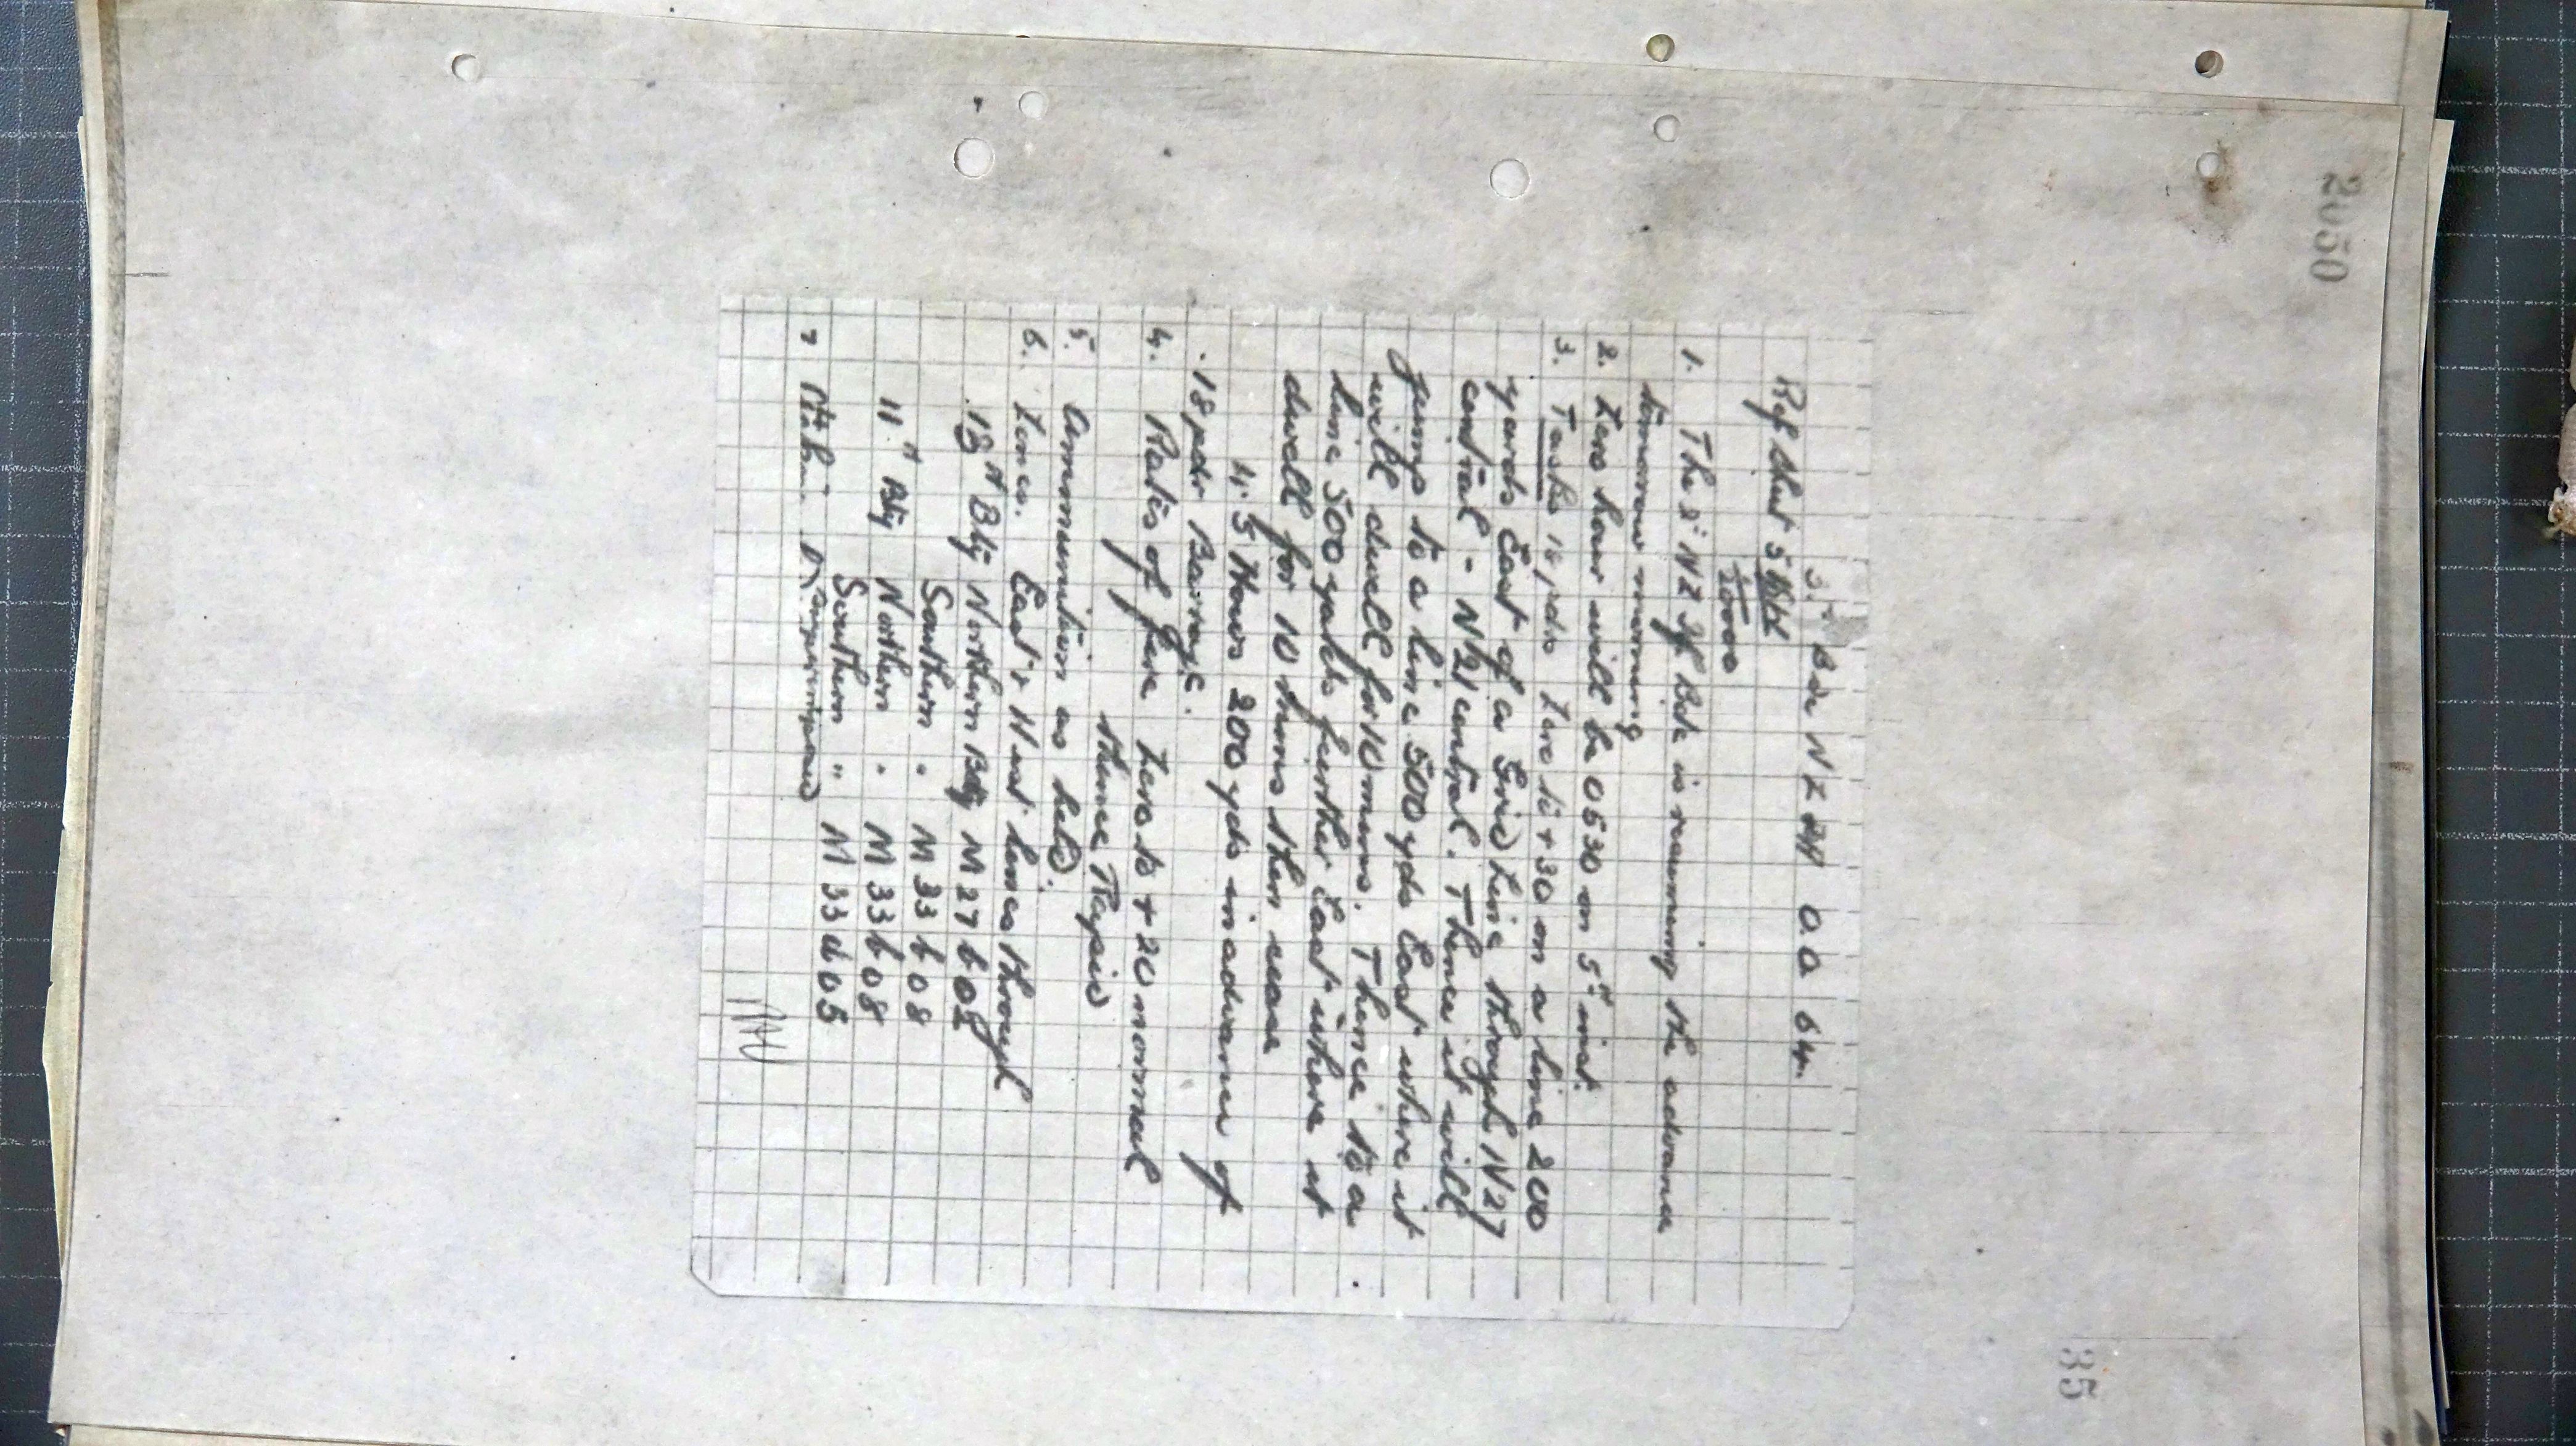 2650
3rd Bde NZFA O.O 64.
Ref Sheet 51
1/20000
1. The 2nd NZ Inf Bde is resuming the advance
tomorrow morning
2. Zero hour will be 0530 on 5th inst.
3. Tasks 18 pdrs Zero to + 30 on a line 200
yards East of a Grid Line through N27
central - N21 central. Thence it will
jump to a line 500 yds East where it
will dwell for 10 mins. Thence to a
line 500 yards further East where it
dwell for 10 mins then cease
4.5 Hows 200 yds in advance of
18 pdr Barrage.
4. Rates of fire Zero to + 20 normal
thence Rapid
5. Ammunition as held.
6. Zones. East & West lines through
13th Bty Northern Bdy M 27 b 02
Southern " M 33 b 08
11th Bty Northern " M 33 b 08
Southern " M 33 d 05
7
35